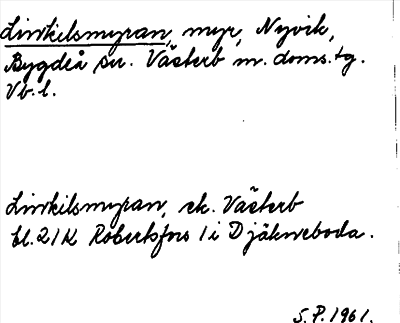 Linkilsmyran, myr, Nyvik,
Bygdeå sn. Västerb m. doms.tg.
Vb.l.
Linkilsmyran, ek. Västerb
bl. 21K Robertsfors 1 i Djäkneboda.
S.P. 1961.